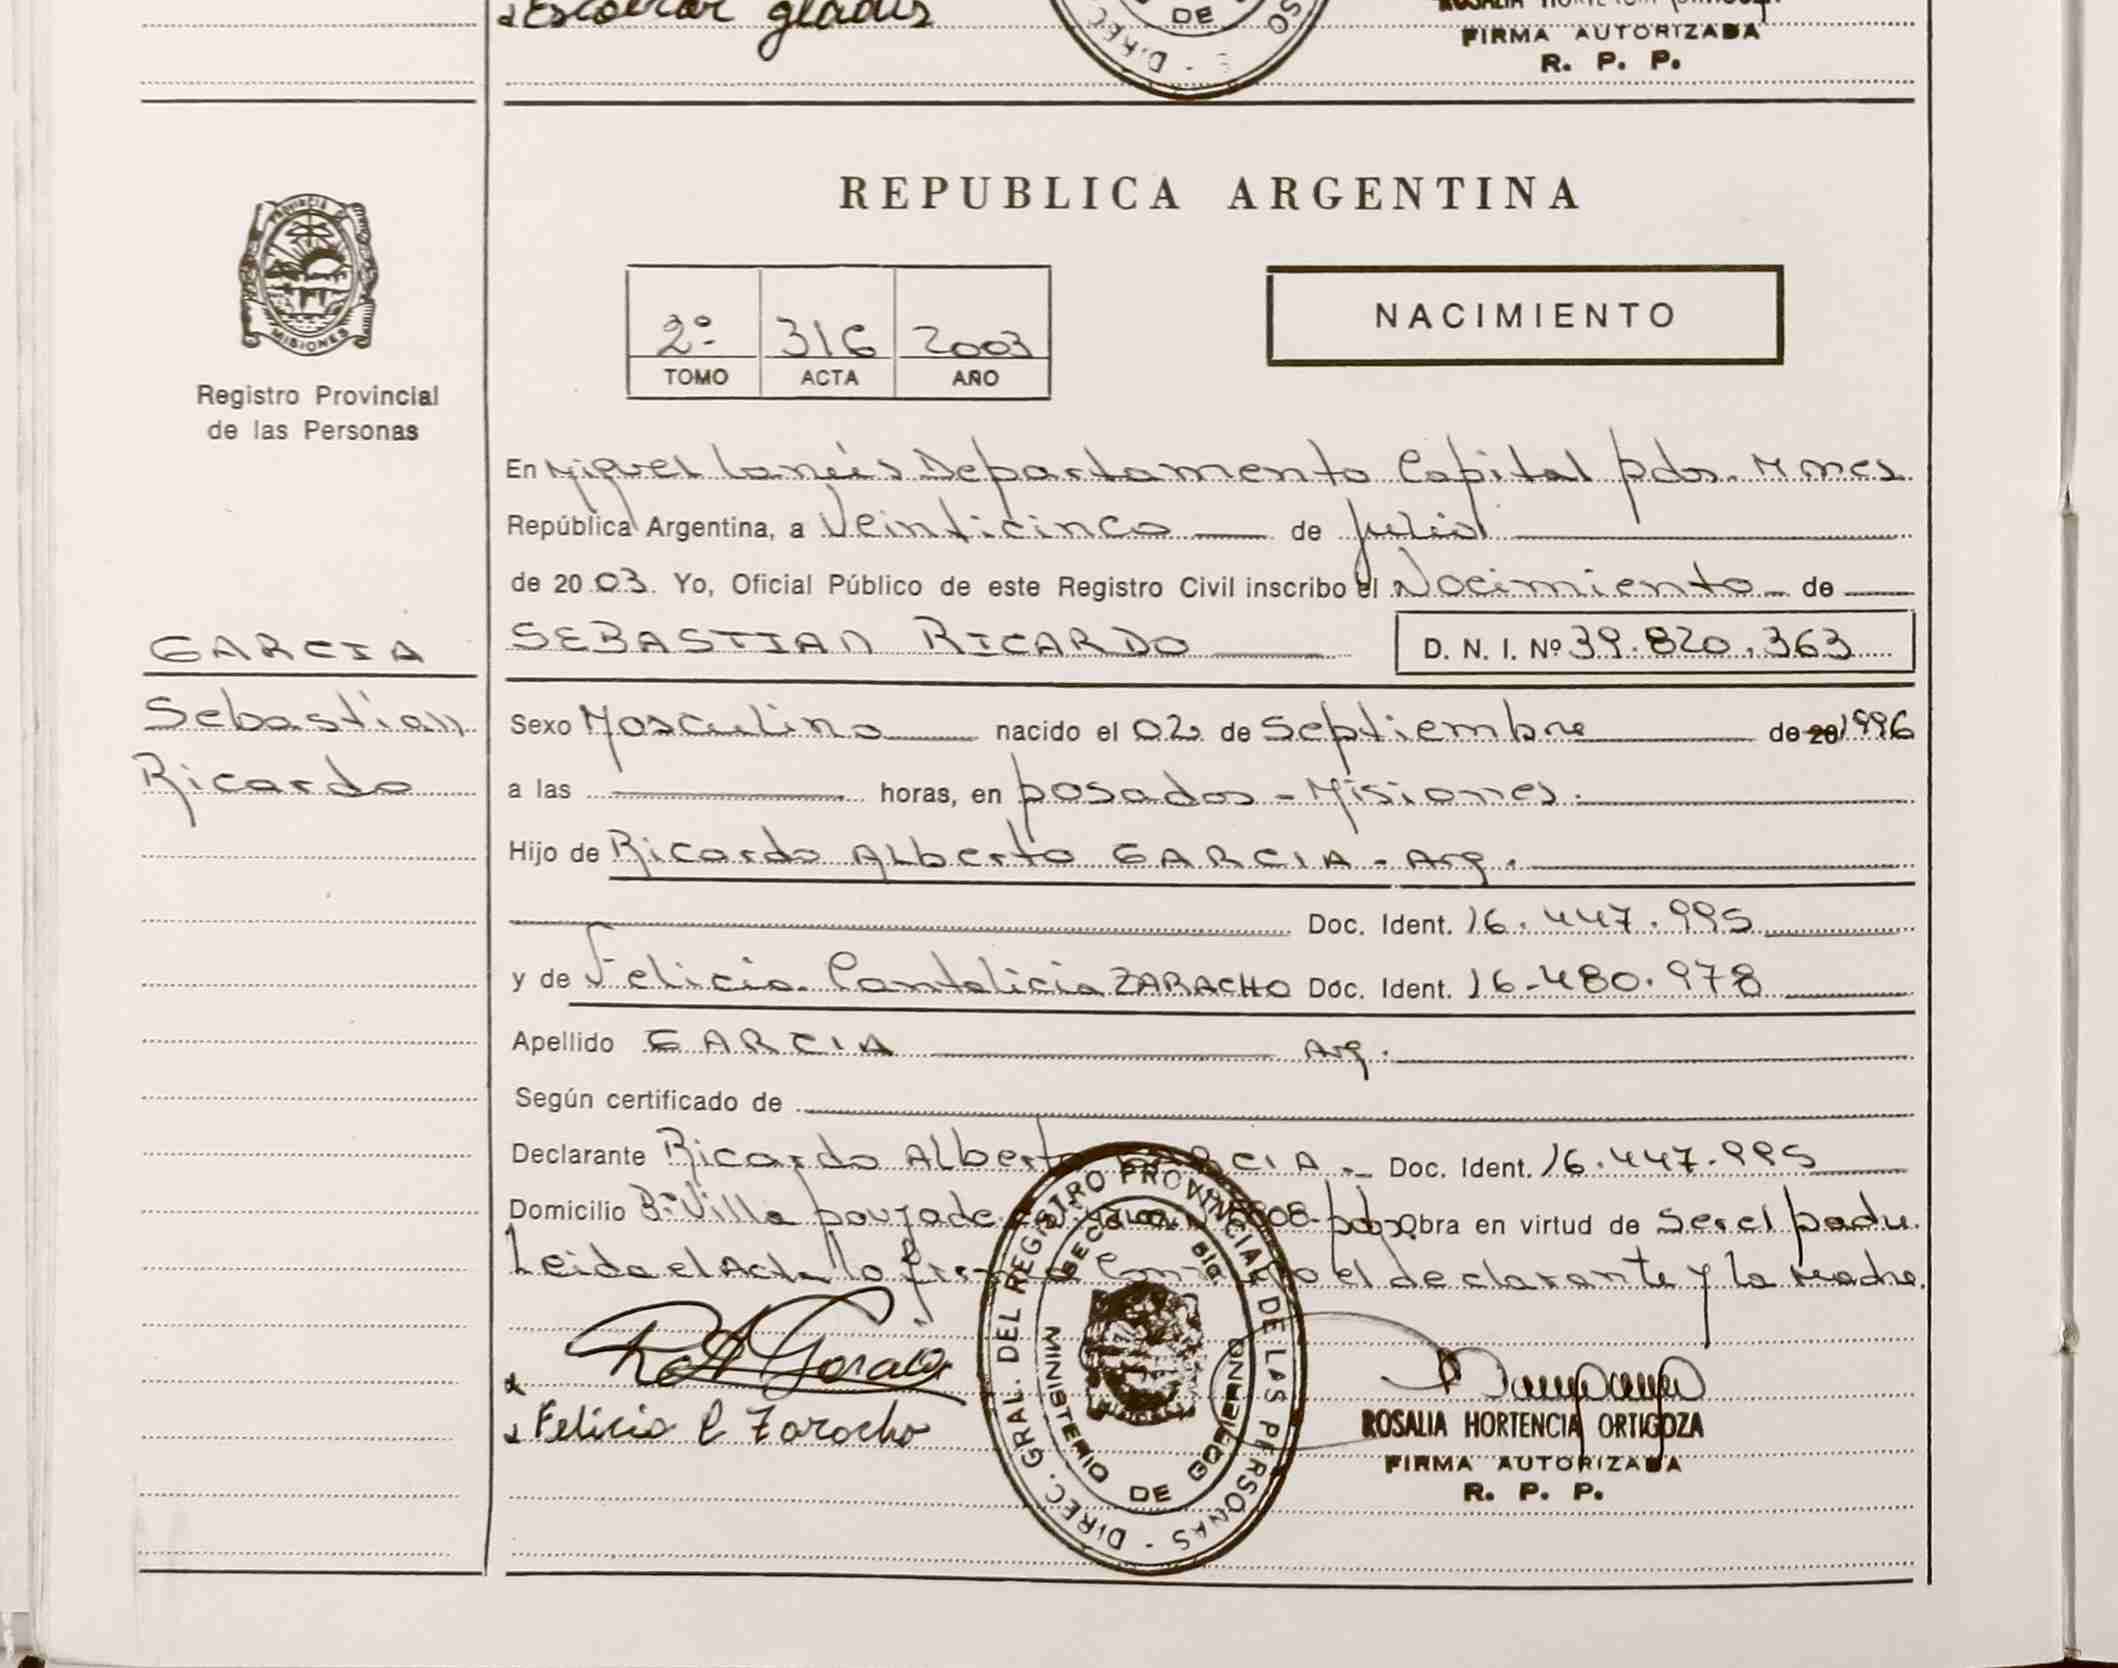 Escobar Gladis
DE
DIREC
FIRMA AUTORIZADA
R. P. P.
PROVINCIA DE
MISIONES
Registro Provincial
de las Personas
REPUBLICA ARGENTINA
2º 316 2003
TOMO ACTA AÑO
NACIMIENTO
En Miguel Lanús Departamento Capital pdas. Mnes
República Argentina, a Veinticinco de Julio
de 2003. Yo, Oficial Público de este Registro Civil inscribo el Nacimiento de
GARCIA
Sebastian
Ricardo
SEBASTIAN RICARDO D. N. I. Nº 39.820.363
Sexo Masculino nacido el 02 de Septiembre de 20 1996
a las horas, en posadas - Misiones.
Hijo de Ricardo Alberto GARCIA - Arg.
Doc. Ident. 16.447.995
y de Felicia Cantalicia ZARACHO Doc. Ident. 16-480.978
Apellido GARCIA Arg.
Según certificado de
Declarante Ricardo Alberto GARCIA - Doc. Ident. 16.447.995
Domicilio Bº Villa poujade 5808-pdas Obra en virtud de ser el padre.
Leida el Acta la firman conmigo el declarante y la madre.
R A Garcia
Felicia C Zaracho
DIREC. GRAL. DEL REGISTRO PROVINCIAL DE LAS PERSONAS
MINISTERIO DE GOBIERNO
ROSALIA HORTENCIA ORTIGOZA
FIRMA AUTORIZADA
R. P. P.